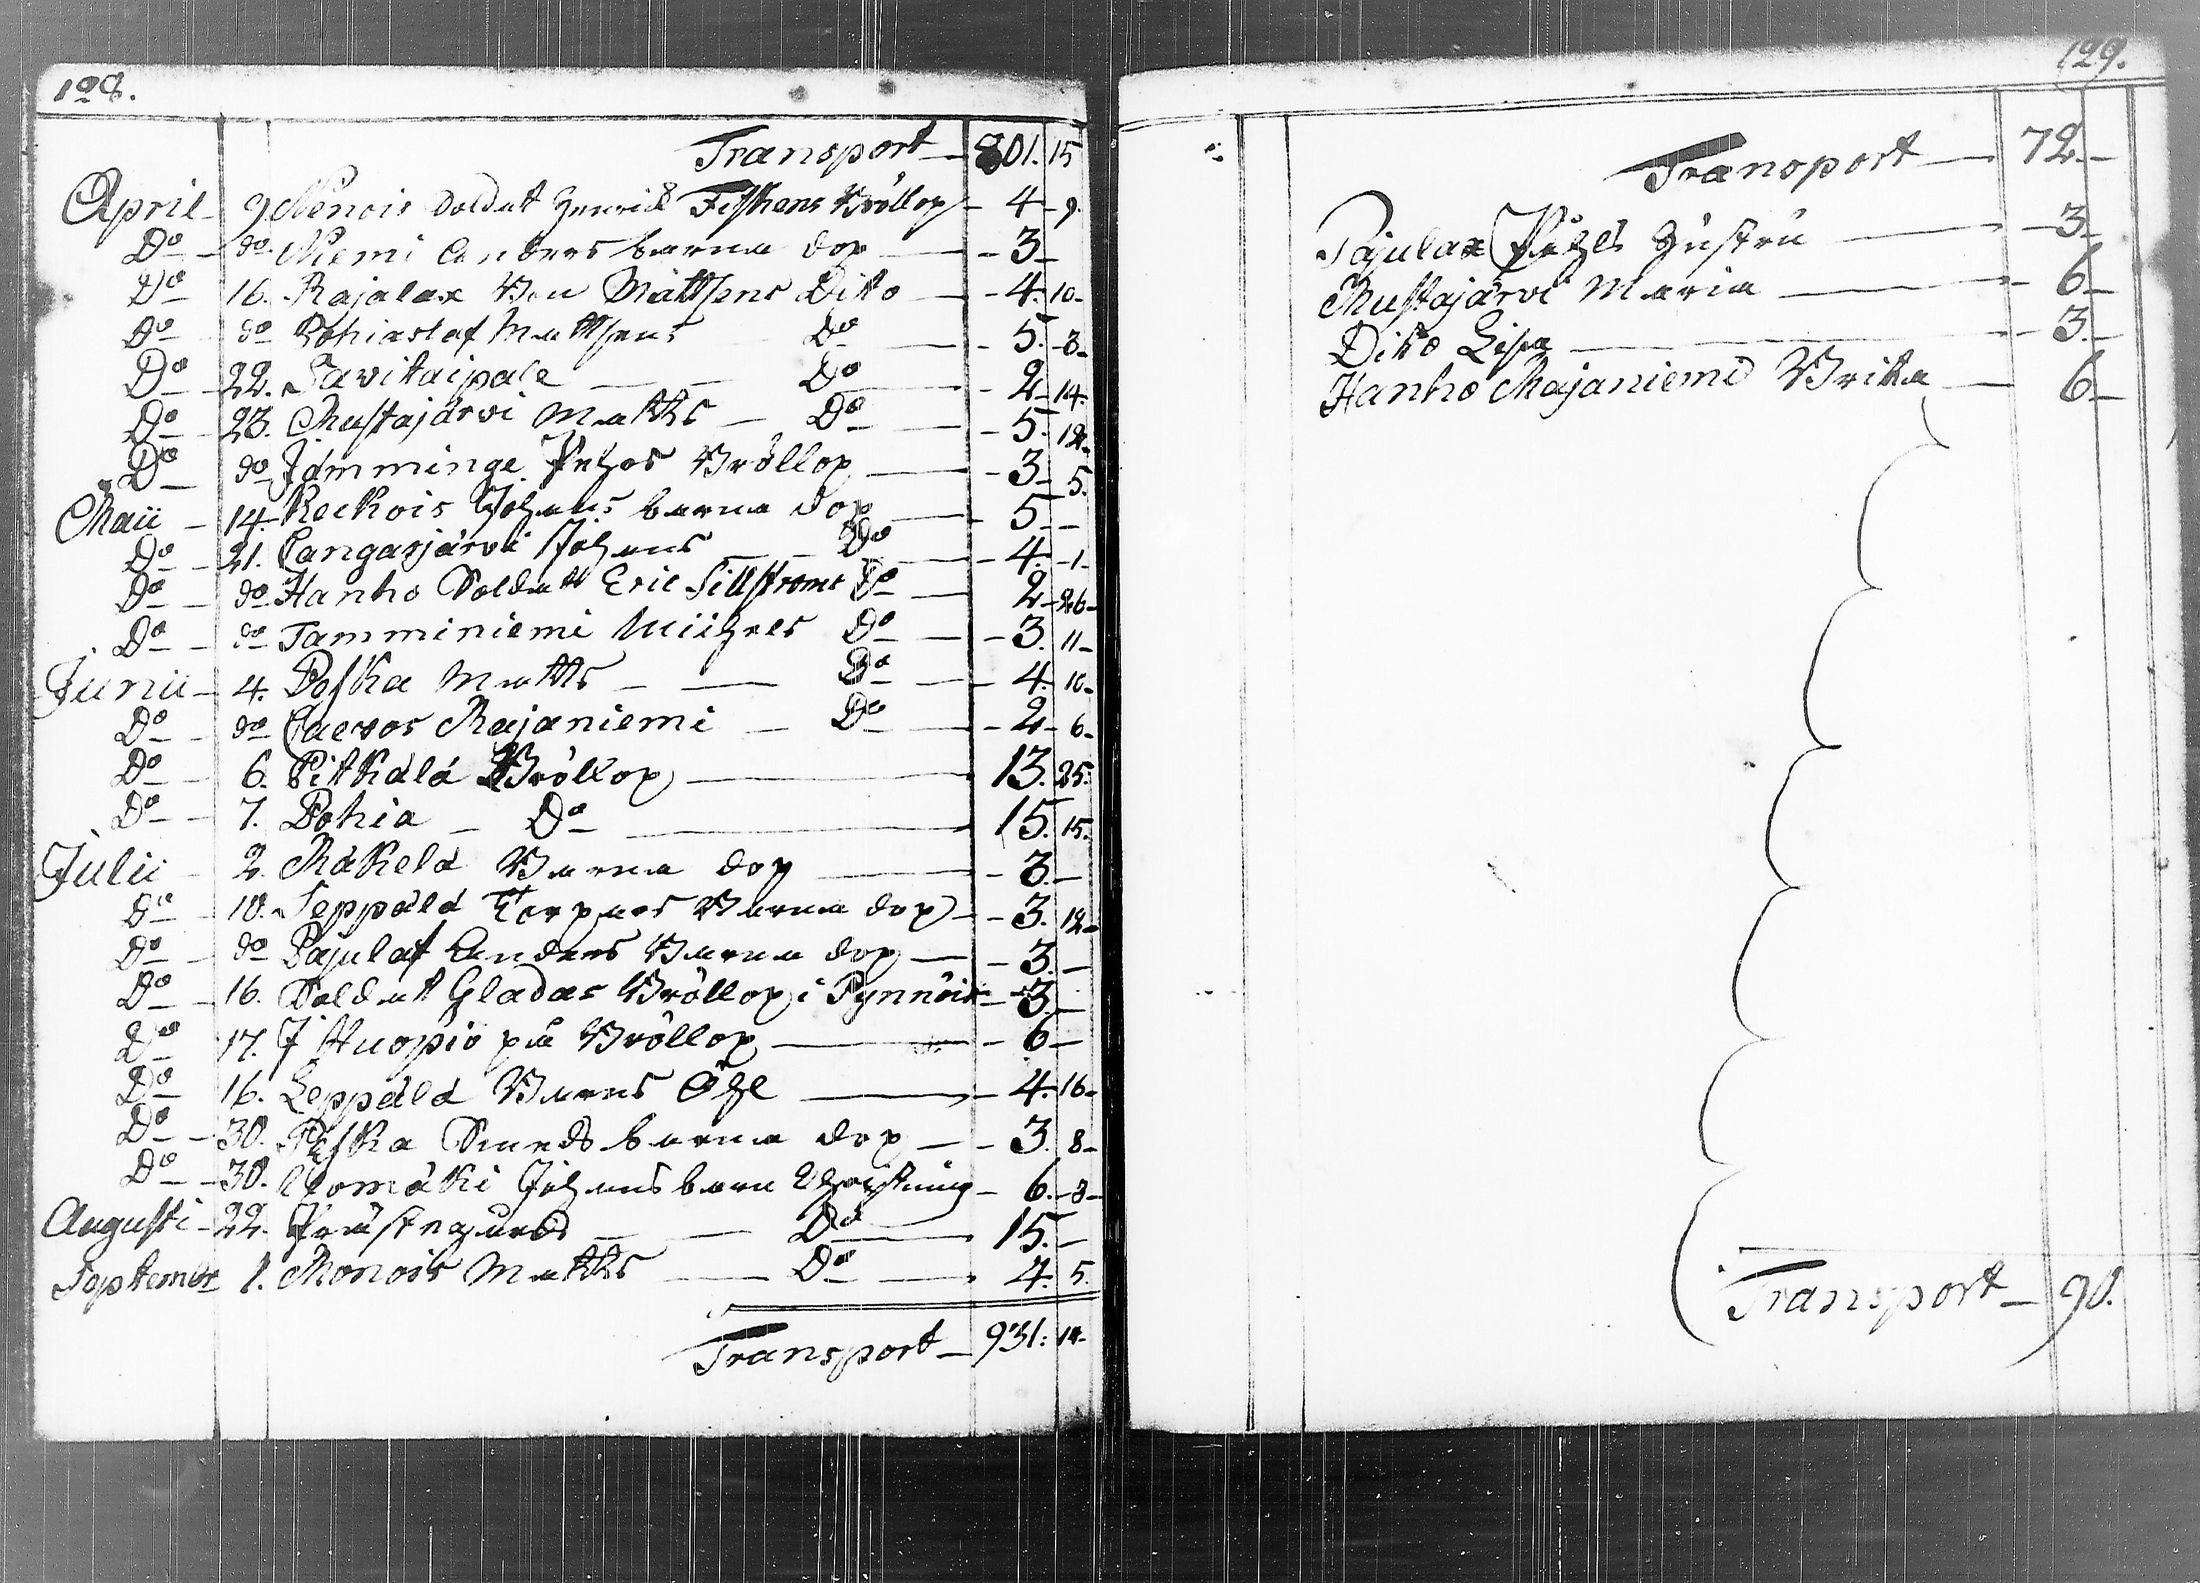 128.
Transport — 801. 15
April — 9 Nenois Soldat Henrich Fiskens Bröllop — 4 — 9.
Do — do Niemi Anders barna dop — 3 —
Do — 16. Rajalax Ben Mattsens Dito — 4. 10 —
Do do Pohiaslaf Mattsens Do — 5. — 3 —
Do — 22. Savitaipale — Do — 2 — 14.
Do — 23. Mustajärvi Matts — Do — 5. 12.
Do do Jämminge Pehrs Bröllop — 3 — 5.
Maii — 14. Keckois Johans barna dop — 5 — —
Do — 21. Cangasjärvi Johans — Do — 4. — 1 —
Do — do Hanho Soldatt Eric Sillströms Do — 2 — 26 —
Do — do Tamminiemi Michels Do — 3. 11 —
Junii — 4. Poska Matts — Do — 4. 10 —
Do — do Majaniemi — Do — 2 — 6 —
Do — 6. Pitkälä Bröllop — 13. 25.
Do — 7. Pohia — Do — 15. 15.
Julii 2. Mäkelä Barna dop — 3. —
Do — 10. Seppälä Torpars Barna dop — 3. 12 —
Do — do Pajulaf Anders Barna dop — 3. —
Do — 16. Soldat Gladas Bröllop i Pynnöis — 3 —
Do 17. J Huopio på Bröllop — 6 —
Do 16. Leppälä Barns Öhl — 4. 16 —
Do — 30. Smeds barna dop — 3. 8 —
Do — 30. Johans barn Christning — 6. — 3 —
Augusti — 22. Prästegårds — Do — 15. —
Septembr 1. Monois Matts — Do — 4. 5.
Transport — 931. 14 —
129.
Transport — 72. —
Pajulax Pehrs Hustru — 3 —
Mustajärvi Maria — 6 —
Dito Lisa — 3. —
Hanho Majaniemi Brita — 6 —
Transport — 90.